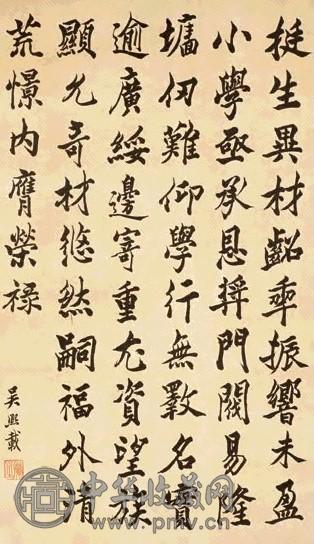 挺生異材齠秊振響未盈
小學亟承恩獎門閥易隆
墉仞難仰學行無斁名實
逾廣綏邊寄重尤資望族
顯允奇材然嗣福外清
荒憬内膺榮祿
吳熙載
中华收藏网